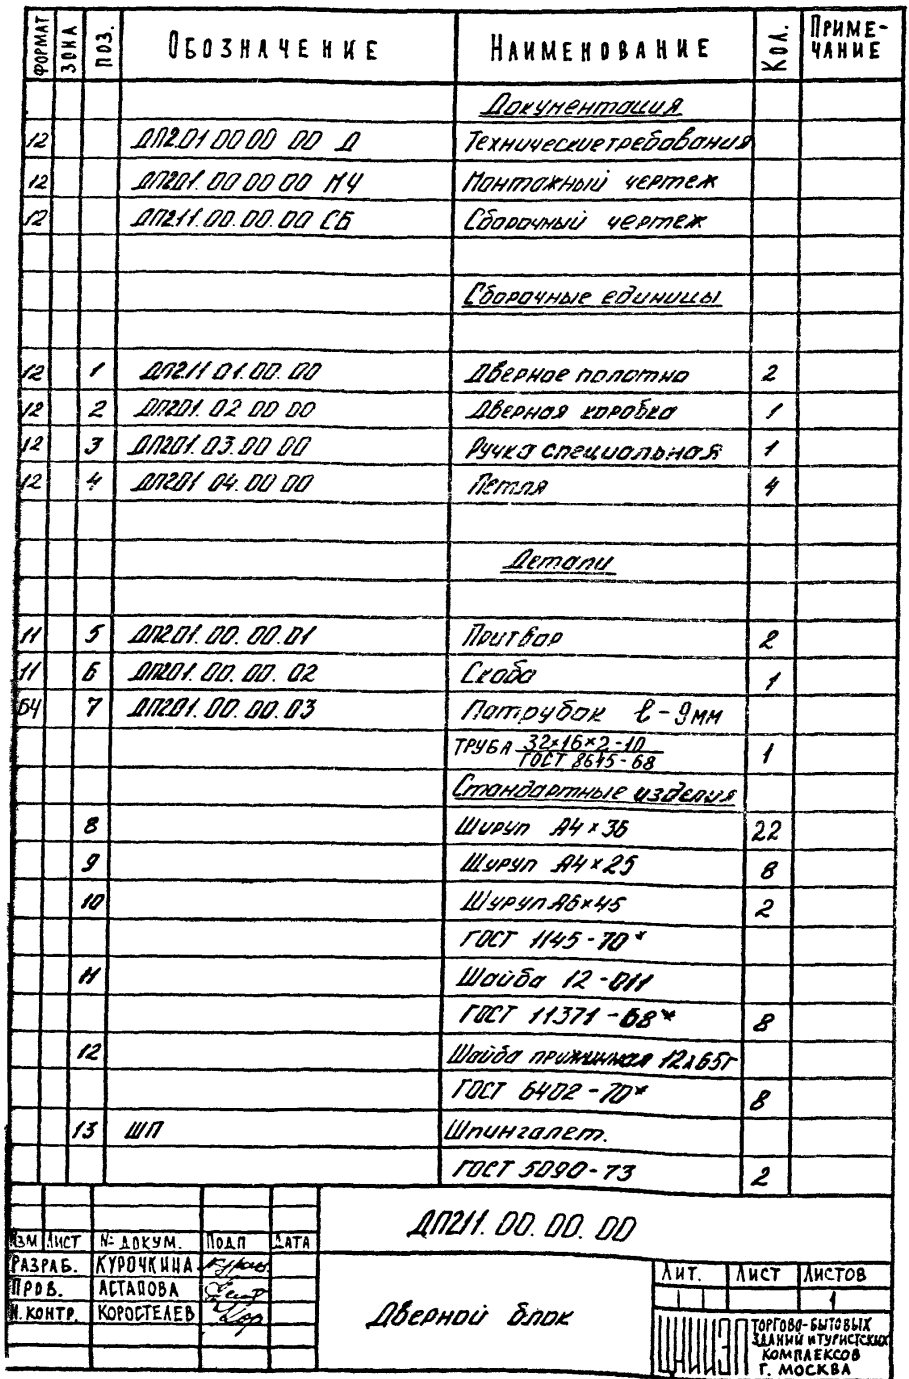 ФОРМАТ ЗОНА ПОЗ. ОБОЗНАЧЕНИЕ НАИМЕНОВАНИЕ КОЛ. ПРИМЕ-
ЧАНИЕ
Документация
12 ДП2.01 00 00 00 Д Технические требования
12 ДП201.00 00 00 МЧ Монтажный чертеж
12 ДП211.00.00.00 СБ Сборочный чертеж
Сборочные единицы
12 1 ДП211 01.00.00 Дверное полотно 2
12 2 ДП201.02 00 00 Дверная коробка 1
12 3 ДП201.03.00 00 Ручка специальная 1
12 4 ДП201 04.00 00 Петля 4
Детали
11 5 ДП201.00.00.01 Притвор 2
11 6 ДП201.00.00.02 Скоба 1
БЧ 7 ДП201.00.00.03 Патрубок ℓ-9мм
ТРУБА 32×16×2-10
ГОСТ 8645-68 1
Стандартные изделия
8 Шуруп А4×36 22
9 Шуруп А4×25 8
10 Шуруп А6×45 2
ГОСТ 1145-70*
11 Шайба 12-011
ГОСТ 11371-68* 8
12 Шайба пружинная 12х65Г
ГОСТ 6402-70* 8
13 ШП Шпингалет.
ГОСТ 5090-73 2
ДП211.00.00.00
ИЗМ ЛИСТ № ДОКУМ. ПОДП ДАТА
РАЗРАБ. КУРОЧКИНА
ПРОВ. АСТАПОВА
Н.КОНТР. КОРОСТЕЛЕВ
Дверной блок
ЛИТ. ЛИСТ ЛИСТОВ
1
ЦНИИЭП ТОРГОВО-БЫТОВЫХ
ЗДАНИЙ И ТУРИСТСКИХ
КОМПЛЕКСОВ
Г. МОСКВА